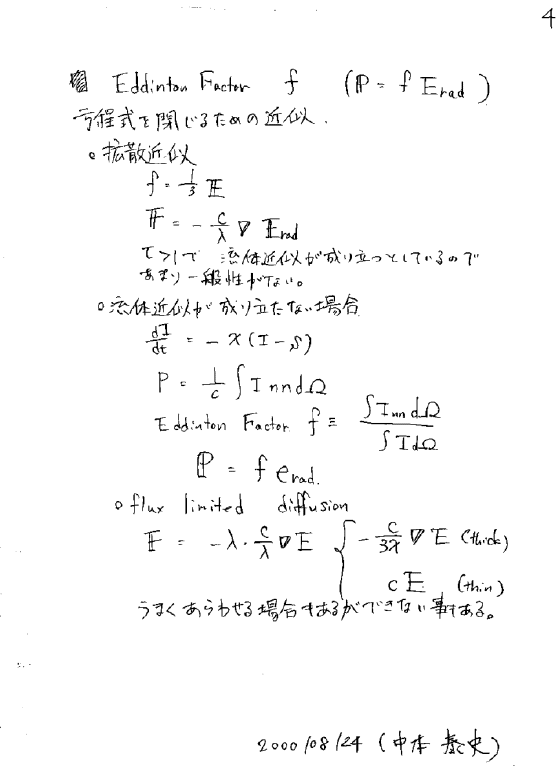 4
Eddinton Factor f (ℙ = f E_rad)
方程式を閉じるための近似.
○拡散近似
f = 1/3 𝔼
𝔽 = - c/λ ∇ E_rad
τ>1で 流体近似が成り立つとしているので
あまり一般性がない。
○流体近似が成り立たない場合
dI/dt = - χ (I - S)
P = 1/c ∫ I nn dΩ
Eddinton Factor f ≡ ∫Inn dΩ / ∫I dΩ
ℙ = f e_rad.
○flux limited diffusion
𝔽 = -λ · c/λ ∇E { - c/3χ ∇E (thick)
cE (thin)
うまくあらわせる場合もあるができない事もある。
2000/08/24 (中本 泰史)